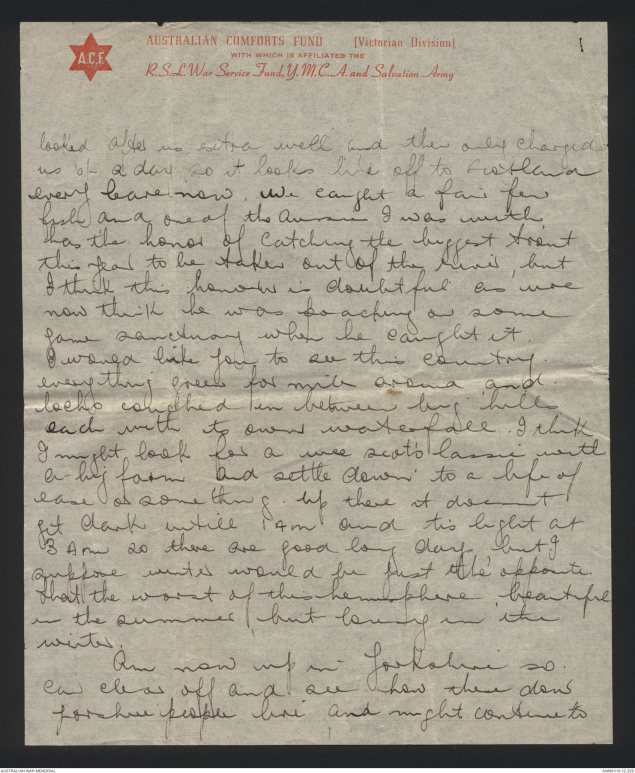 A.C.F.
AUSTRALIAN COMFORTS FUND [Victorian Division]
WITH WHICH IS AFFILIATED THE
R.S.L. War Service Fund, Y.M.C.A. and Salvation Army
looked after us extra well and they only charged
us 6/- a day so it looks like off to Scotland
every leave now. We caught a fair few
fish and one of the Aussies I was with
has the honor of catching the biggest trout
this year to be taken out of the river, but
I think this honour is doubtful as we
now think he was poaching on some
game sanctuary when he caught it.
I would like you to see this country
everything green for miles around and
lochs couched in between big hills
each with its own waterfall. I think
I might look for a wee Scots lassie with
a big farm and settle down to a life of
ease or something. Up there it doesn't
get dark untill 1 AM and tis light at
3 AM so there are good long days but I
suppose winter would be just the opposite.
that the worst of this hemisphere beautiful
in the summer, but lousy in the
winter.
Am now up in Yorkshire so
can clear off and see how these
people live and might continue to
AUSTRALIAN WAR MEMORIAL